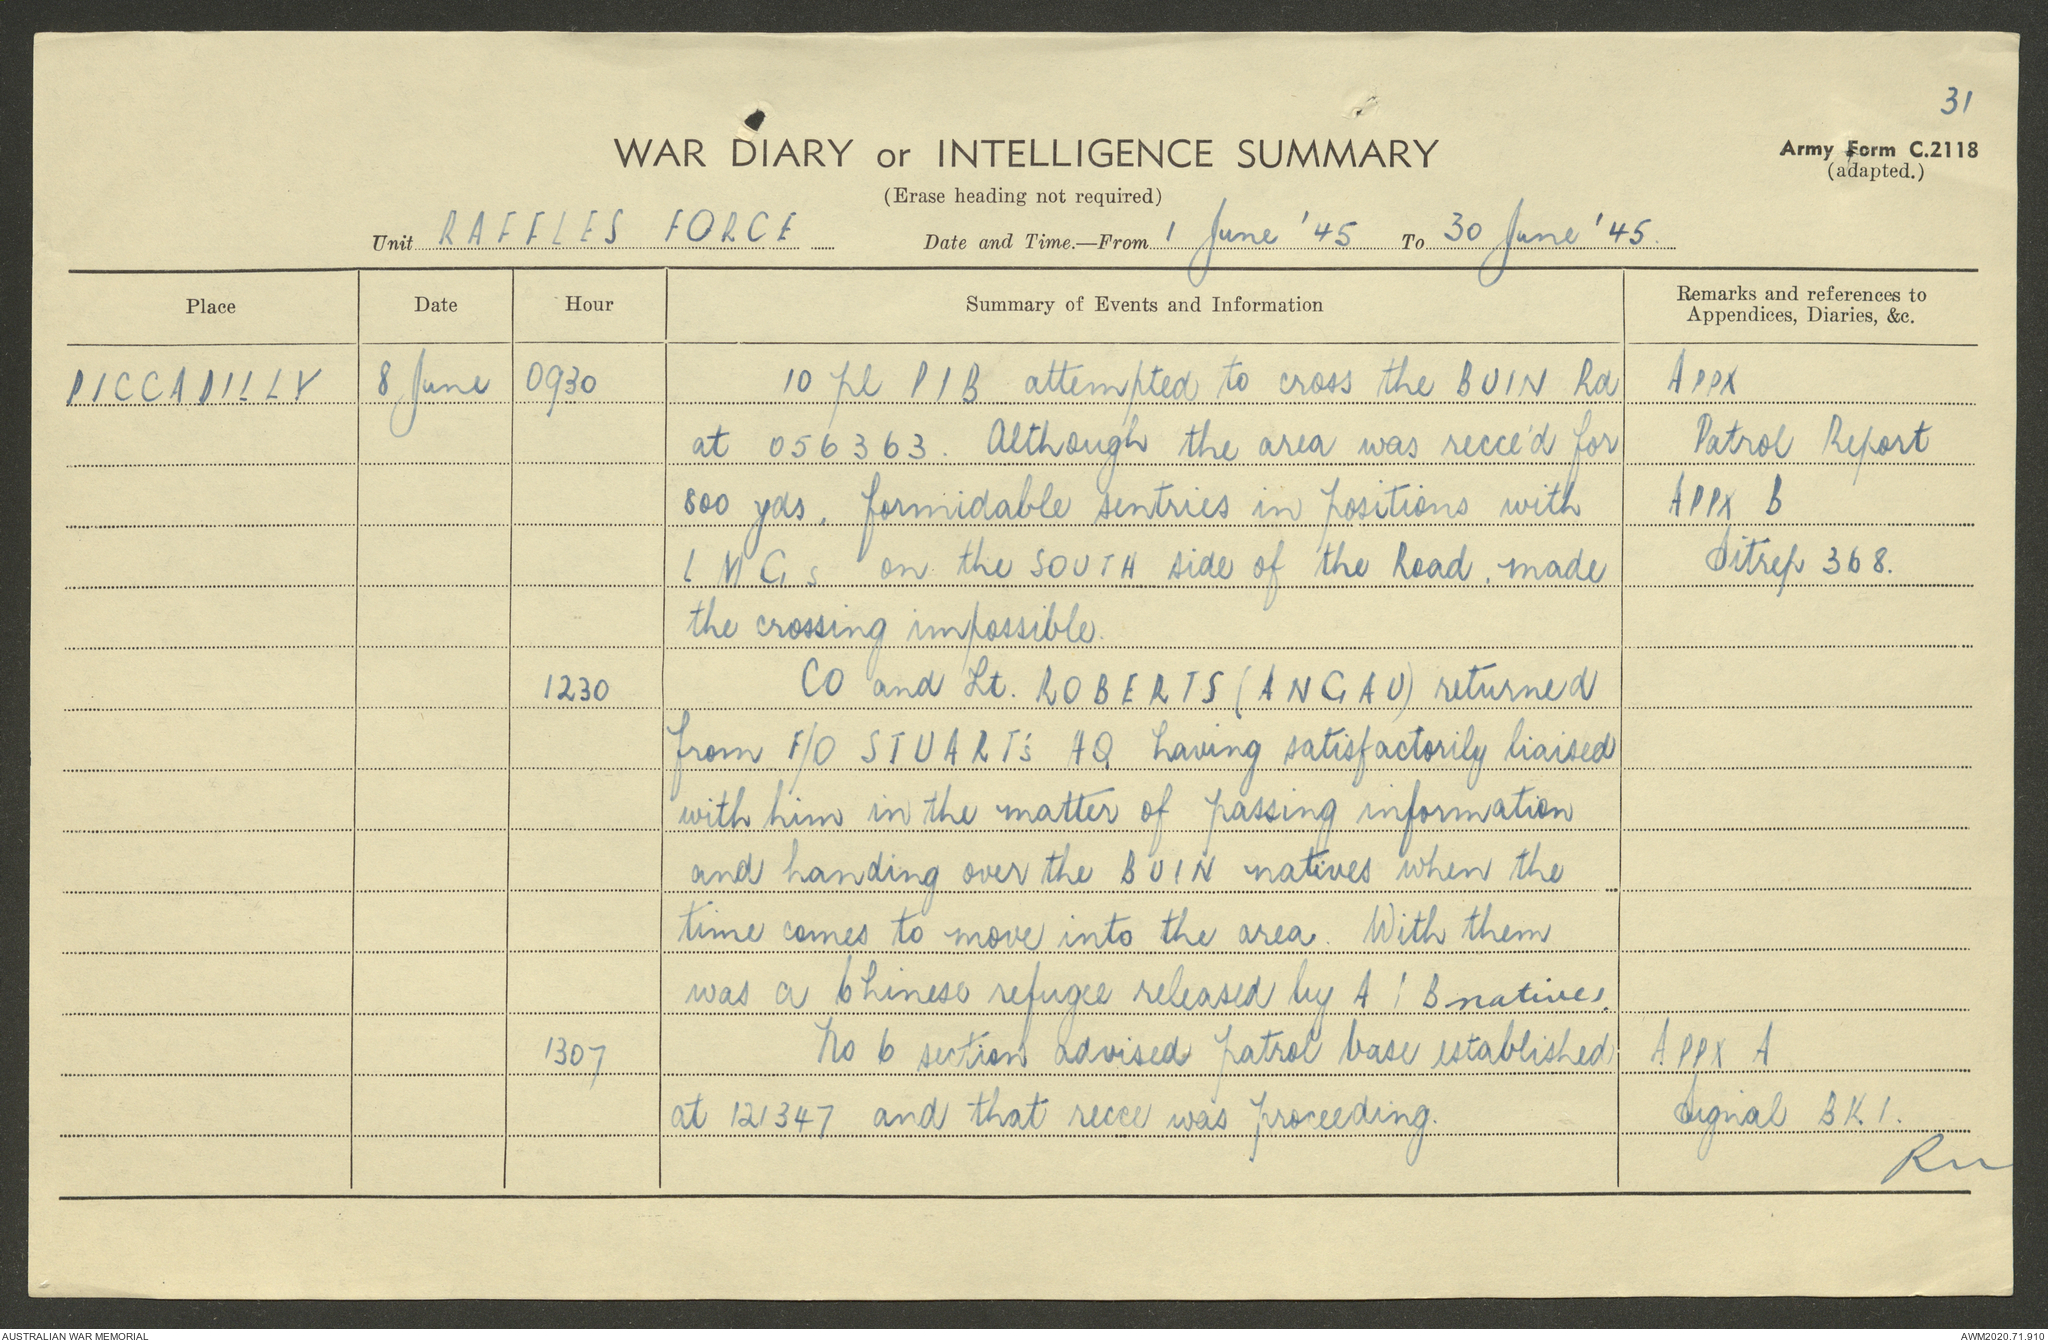 31
WAR DIARY or INTELLIGENCE SUMMARY
Army Form C.2118
(adapted.)
(Erase heading not required)
Unit RAFFLES FORCE Date and Time.—From 1 June '45 To 30 June '45.
Place Date Hour Summary of Events and Information Remarks and references to
Appendices, Diaries, &c.
PICCADILLY 8 June 0930 10 pl PIB attempted to cross the BUIN Rd Appx
at 056363. Although the area was recce'd for Patrol Report
800 yds, formidable sentries in positions with Appx B
LMGs on the SOUTH side of the Road, made Sitrep 368.
the crossing impossible.
1230 CO and Lt. ROBERTS (ANGAU) returned
from F/O STUART's HQ having satisfactorily liaised
with him in the matter of passing information
and handing over the BUIN natives when the
time comes to move into the area. With them
was a Chinese refugee released by AIB natives.
1307 No 6 section advised patrol base established Appx A
at 121347 and that recce was proceeding. Signal BK1.
AUSTRALIAN WAR MEMORIAL
AWM2020.71.910